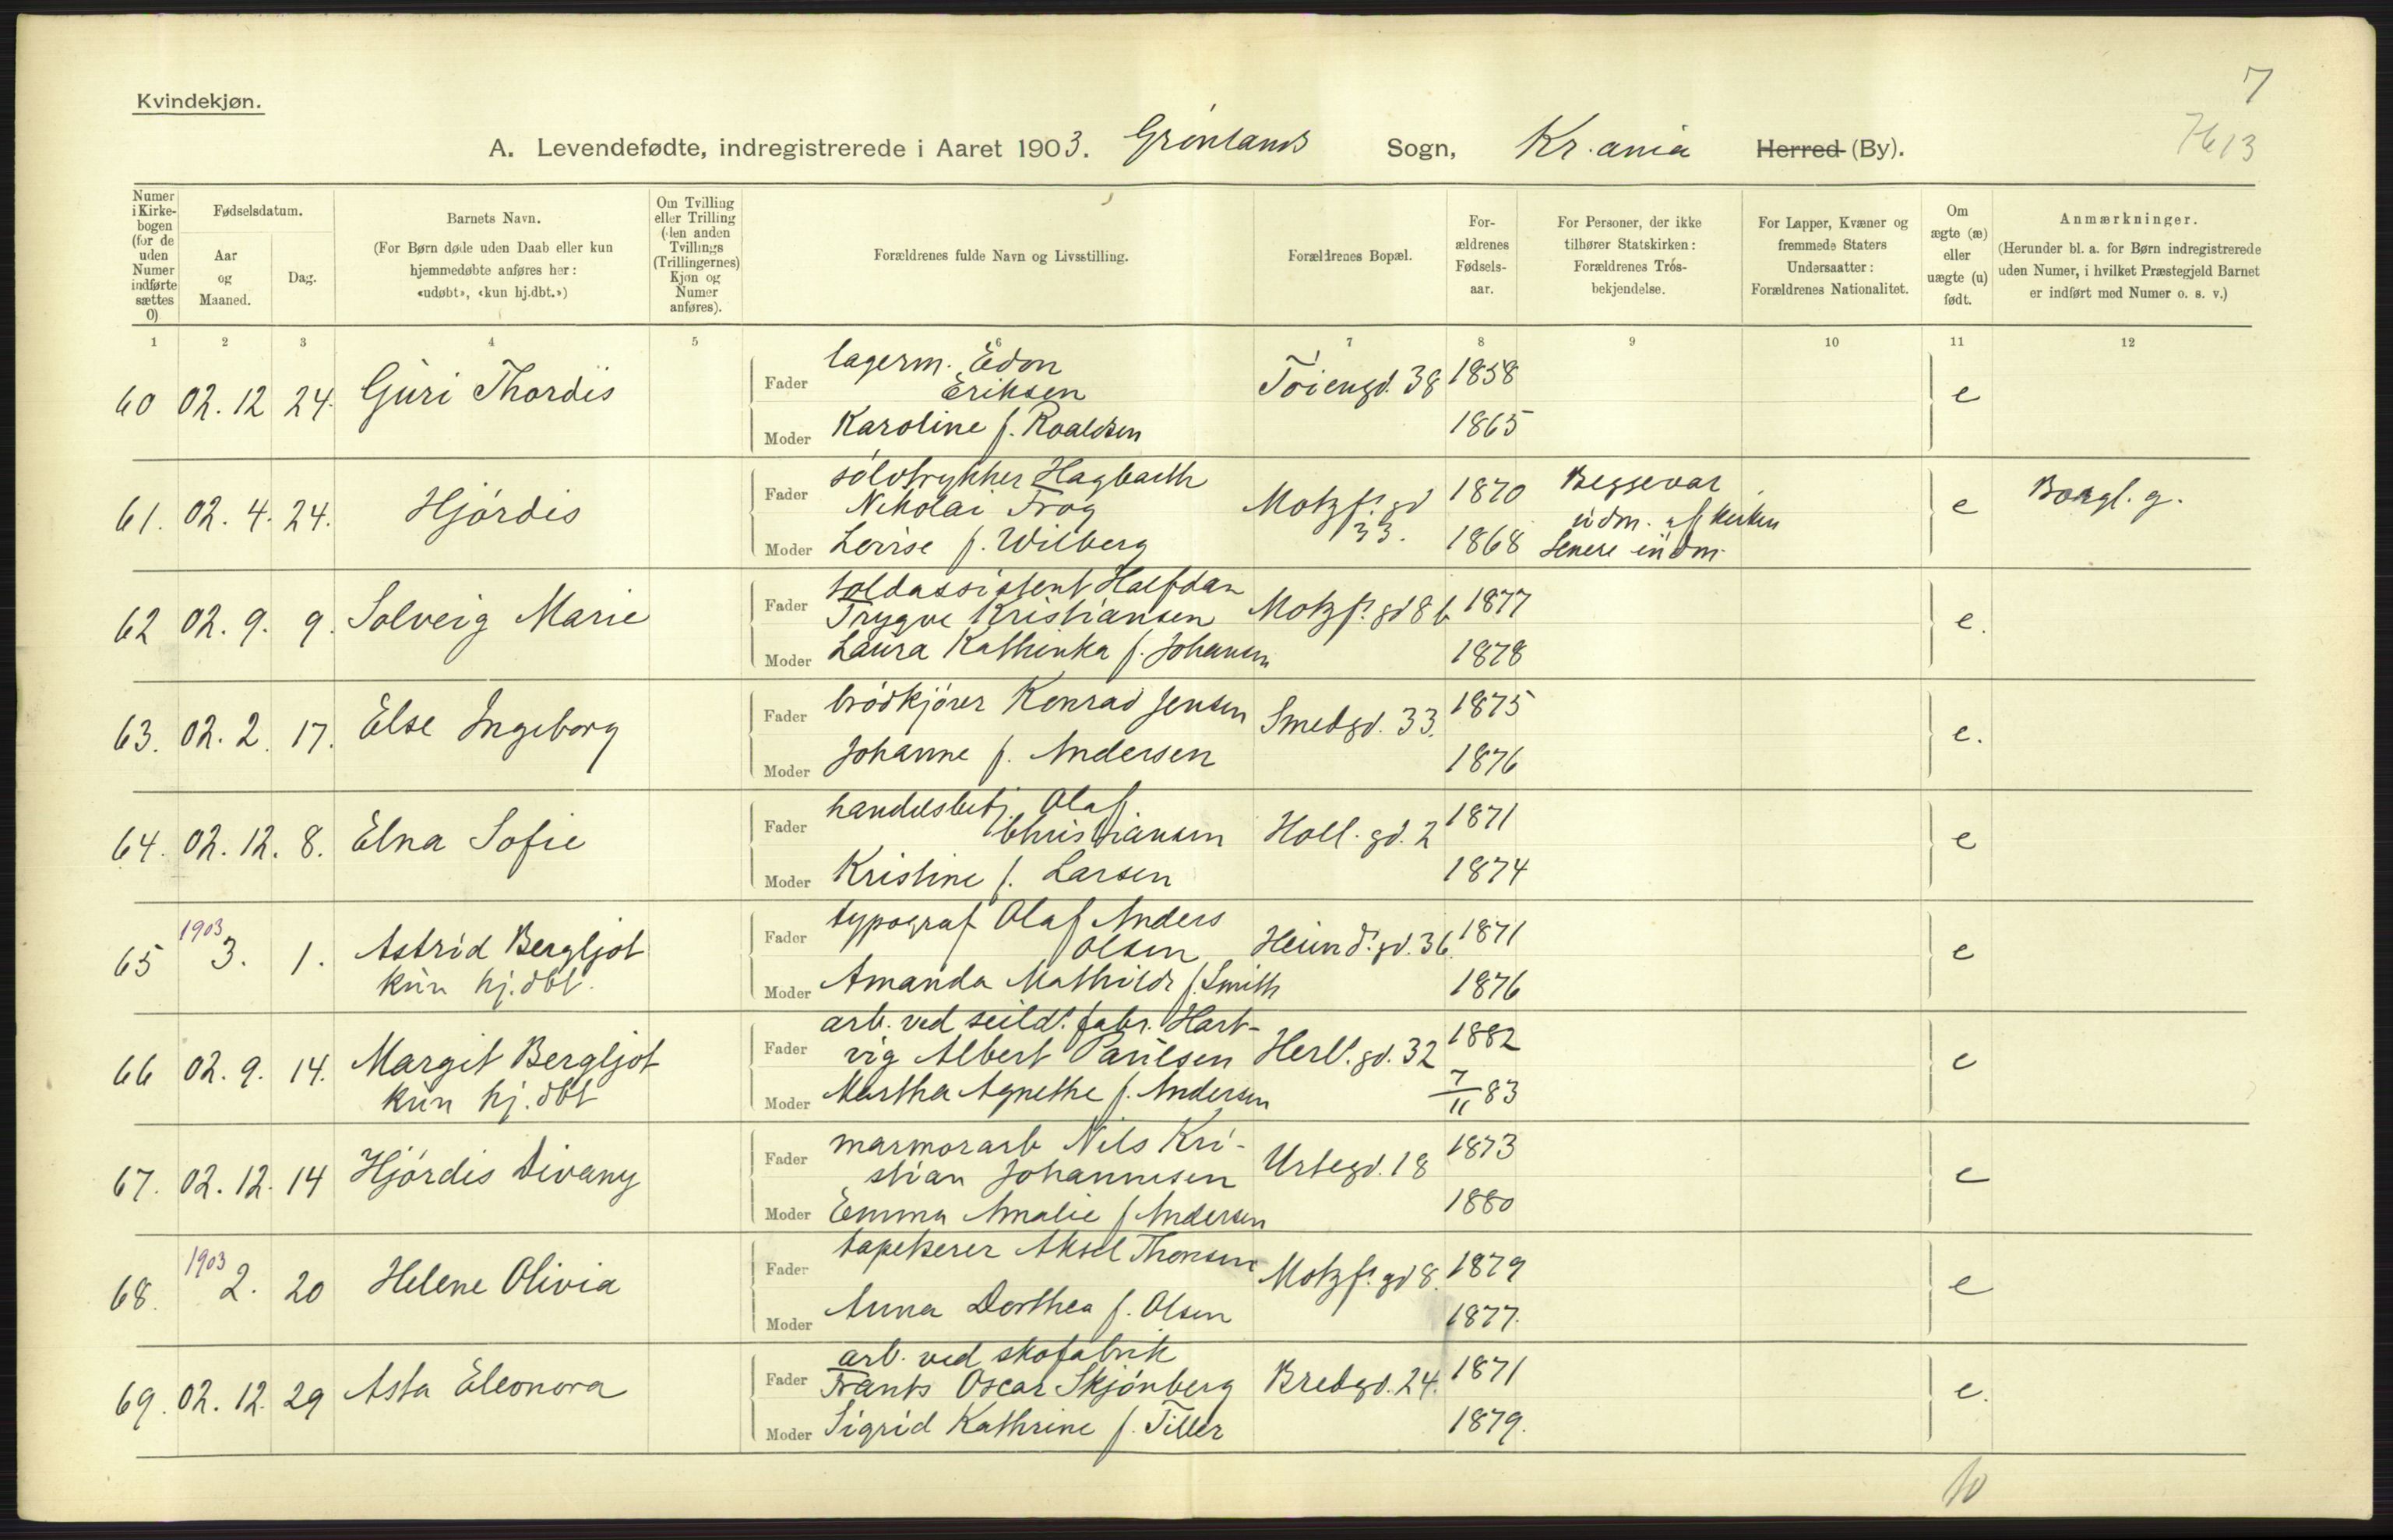 7
7613
Kvindekjøn.
A. Levendefødte, indregistrerede i Aaret 1903. Grønlands Sogn, Kr.ania Herred (By).
Numer i Kirke-bogen (for de uden Numer indførte sættes 0)
Fødselsdatum.
Aar og Maaned.
Dag.
Barnets Navn.
(For Børn døde uden Daab eller kun hjemmedøbte anføres her: «udøbt», «kun hj.dbt.»)
Om Tvilling eller Trilling (den anden Tvillings (Trillingernes) Kjøn og Numer anføres).
Forældrenes fulde Navn og Livsstilling.
Forældrenes Bopæl.
For-ældrenes Fødsels-aar.
For Personer, der ikke tilhører Statskirken: Forældrenes Trós-bekjendelse.
For Lapper, Kvæner og fremmede Staters Undersaatter: Forældrenes Nationalitet.
Om ægte (æ) eller uægte (u) født.
Anmærkninger.
(Herunder bl. a. for Børn indregistrerede uden Numer, i hvilket Præstegjeld Barnet er indført med Numer o. s. v.)
1 2 3 4 5 6 7 8 9 10 11 12
60 02. 12 24. Guri Thordis
Fader lagerm. Edon Eriksen Tøiengd. 38 1858 e
Moder Karoline f. Roaldsen 1865
61. 02. 4. 24. Hjórdis
Fader sólvtrykker Hagbarth Nikolai Frog Motzf.s gd 33. 1870 Begge var udm. af kirken senere indm. e Borgl. g.
Moder Lovise f. Wilberg 1868
62 02. 9. 9. Solveig Marie
Fader toldassistent Halfdan Trygve Kristiansen Motzf.s gd 8 b 1877 e.
Moder Laura Kathinka f. Johansen 1878
63. 02. 2. 17. Else Ingeborg
Fader bródkjórer Konrad Jensen Smedgd. 33. 1875 e.
Moder Johanne f. Andersen 1876
64. 02. 12. 8. Elna Sofie
Fader handelsbetj Olaf Christiansen Holl. gd. 2 1871 e
Moder Kristine f. Larsen 1874
65 1903 3. 1. Astrid Bergljot kun hj. dbt.
Fader typograf Olaf Anders Olsen Heimd.s gd. 36. 1871 e
Moder Amanda Mathilde f. Smith 1876
66 02. 9. 14. Margit Bergljot kun hj. dbt
Fader arb. ved seild.s fabr. Hart-vig Albert Paulsen Herl.s gd. 32 1882 e
Moder Martha Agnethe f. Andersen 7/11 83
67. 02. 12. 14 Hjórdis Divany
Fader marmorarb Nils Kri-stian Johannesen Urtegd. 18 1873 e
Moder Emma Amalie f Andersen 1880
68. 1903 2. 20 Helene Olivia
Fader tapetserer Aksel Thorsen Motzf.s gd 8. 1879 e
Moder Anna Dorthea f. Olsen 1877.
69. 02. 12. 29 Asta Eleonora
Fader arb. ved skofabrik Frants Oscar Skjónberg Bredgd. 24. 1871 e.
Moder Sigrid Kathrine f. Tiller 1879.
10